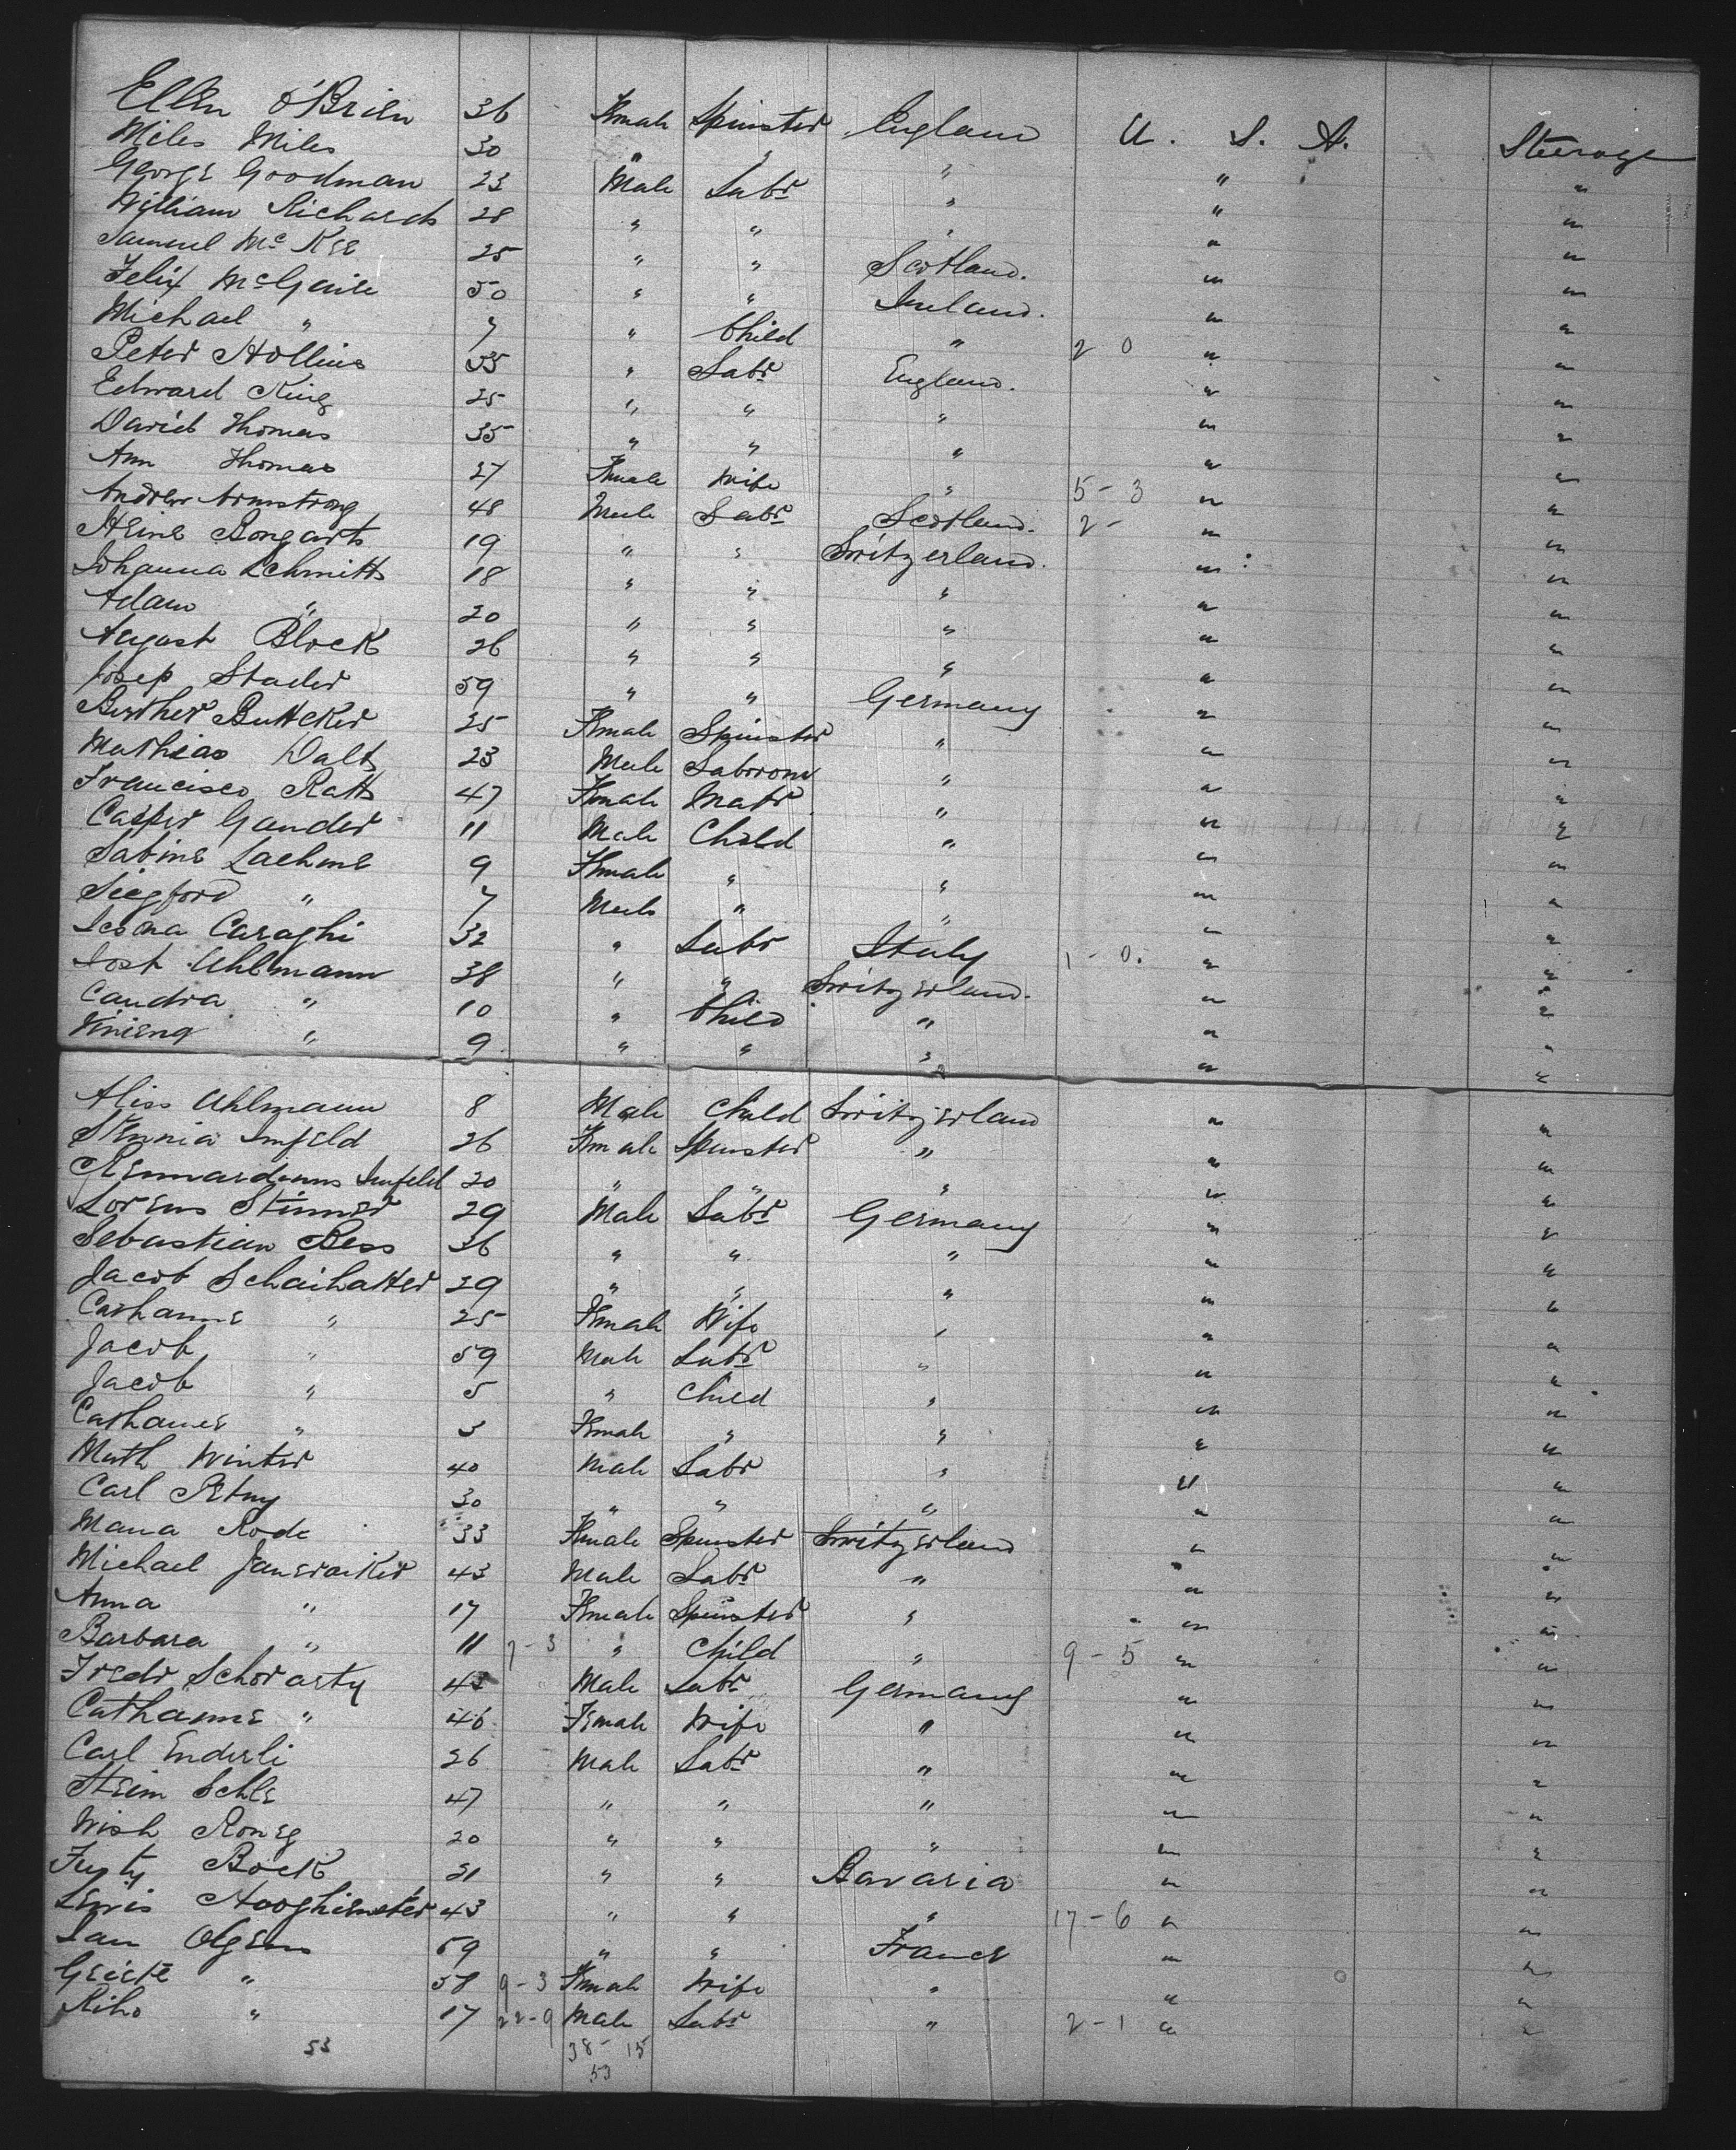 Ellen O'Brien 36 Female Spinster England U. S. A. Steerage
Miles Miles 30 " " " " "
George Goodman 23 Male Labr " " "
William Richards 28 " " " " "
Samuel McKee 25 " " Scotland. " "
Felix McGuire 50 " " Ireland. " "
Michael " 7 " Child " 2 0 " "
Peter Hollins 35 " Labr England. " "
Edward King 25 " " " " "
David Thomas 35 " " " " "
Ann Thomas 27 Female Wife " 5-3 " "
Andrew Armstrong 48 Male Labr Scotland. 2- " "
Heine Bongarts 19 " " Switzerland. " "
Johanna Schmitts 18 " " " " "
Adam " 20 " " " " "
August Block 26 " " " " "
Josep Stader 59 " " Germany " "
Berther Buttcker 25 Female Spinster " " "
Mathias Dalts 23 Male " " "
Francisco Ratts 47 Female Matr " " "
Casper Gander 11 Male Child " " "
Sabine Laehme 9 Female " " " "
Siegford " 7 Male " " " "
Leona Caraghi 32 " Labr Italy 1-0. " "
Jost Uhlmann 38 " " Switzerland. " "
Candra " 10 " Child " " "
" 9 " " " " "
Aliss Uhlmann 8 Male Child Switzerland " "
Imfeld 26 Female Spinster " " "
Imfeld 20 " " " " "
Lorens Stinner 29 Male Labr Germany " "
Sebastian Bess 36 " " " " "
Jacob Schaihatter 29 " " " " "
Cathanne " 25 Female Wife " " "
Jacob " 59 Male Labr " " "
Jacob " 5 " Child " " "
Cathanne " 3 Female " " " "
Math Winter 40 Male Labr " " "
Carl 30 " " " " "
Maria Rode 33 Female Spinster Switzerland " "
Michael 43 Male Labr " " "
Anna " 17 Female Spinster " " "
Barbara " 11 7-3 " Child " 9-5 " "
Fredr Schwarty 45 Male Labr Germany " "
Cathanne " 46 Female Wife " " "
Carl Enderli 26 Male Labr " " "
Heim Schle 47 " " " " "
Wish Roneg 20 " " " " "
Bock 21 " " Bavaria " "
Lewis 43 " " " 17-6 " "
Jan Olgens 59 " " France " "
" 58 9-3 Female Wife " " "
Riho " 17 22-9 Male Labr " 2-1 " "
53 38-15
53